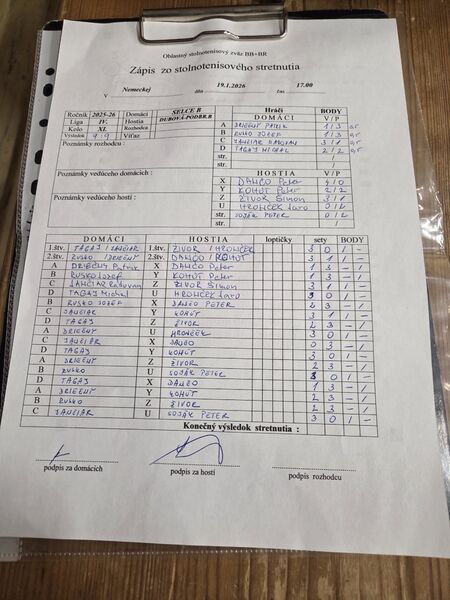 Oblastný stolnotenisový zväz BB+BR
Zápis zo stolnotenisového stretnutia
V Nemeckej dňa 19.1.2026 čas 17.00
Ročník 2025-26 Domáci SELCE B
Liga IV. Hostia DUBOVÁ-PODBR.B
Kolo XI. Rozhodca
Výsledok 9:9 Víťaz
Poznámky rozhodcu :
Poznámky vedúceho domácich :
Poznámky vedúceho hostí :
Hráči BODY
DOMÁCI V/P
A DRIEČNY PATRIK 1/3
B RUSKO JOZEF 1/3
C JANČIAR RADOVAN 3/1
D TAGAJ MICHAL 2/2
str.
str.
HOSTIA V/P
X DANČO Peter 4/0
Y KOHÚT Peter 2/2
Z ŽIVOR Šimon 3/1
U HRONČEK Jaro 0/2
str. SOJÁK PETER 0/2
str.
DOMÁCI HOSTIA loptičky sety BODY
1.štv. TAGAJ / JANČIAR 1.štv. ŽIVOR / HRONČEK 3 0 1 -
2.štv. RUSKO / DRIEČNY 2.štv. DANČO / KOHÚT 3 1 1 -
A DRIEČNY Patrik X DANČO Peter 1 3 - 1
B RUSKO Jozef Y KOHÚT Peter 1 3 - 1
C JANČIAR Radovan Z ŽIVOR Šimon 3 1 1 -
D TAGAJ Michal U HRONČEK Jaro 3 0 1 -
B RUSKO JOZEF X DANČO 2 3 - 1
C JANČIAR Y KOHÚT 3 1 1 -
D TAGAJ Z ŽIVOR 2 3 - 1
A DRIEČNY U HRONČEK 3 0 1 -
C JANČIAR X DANČO 0 3 - 1
D TAGAJ Y KOHÚT 3 0 1 -
A DRIEČNY Z ŽIVOR 2 3 - 1
B RUSKO U SOJÁK PETER 3 0 1 -
D TAGAJ X DANČO 1 3 - 1
A DRIEČNY Y KOHÚT 2 3 - 1
B RUSKO Z ŽIVOR 2 3 - 1
C JANČIAR U SOJÁK PETER 3 0 1 -
Konečný výsledok stretnutia :
podpis za domácich podpis za hostí podpis rozhodcu